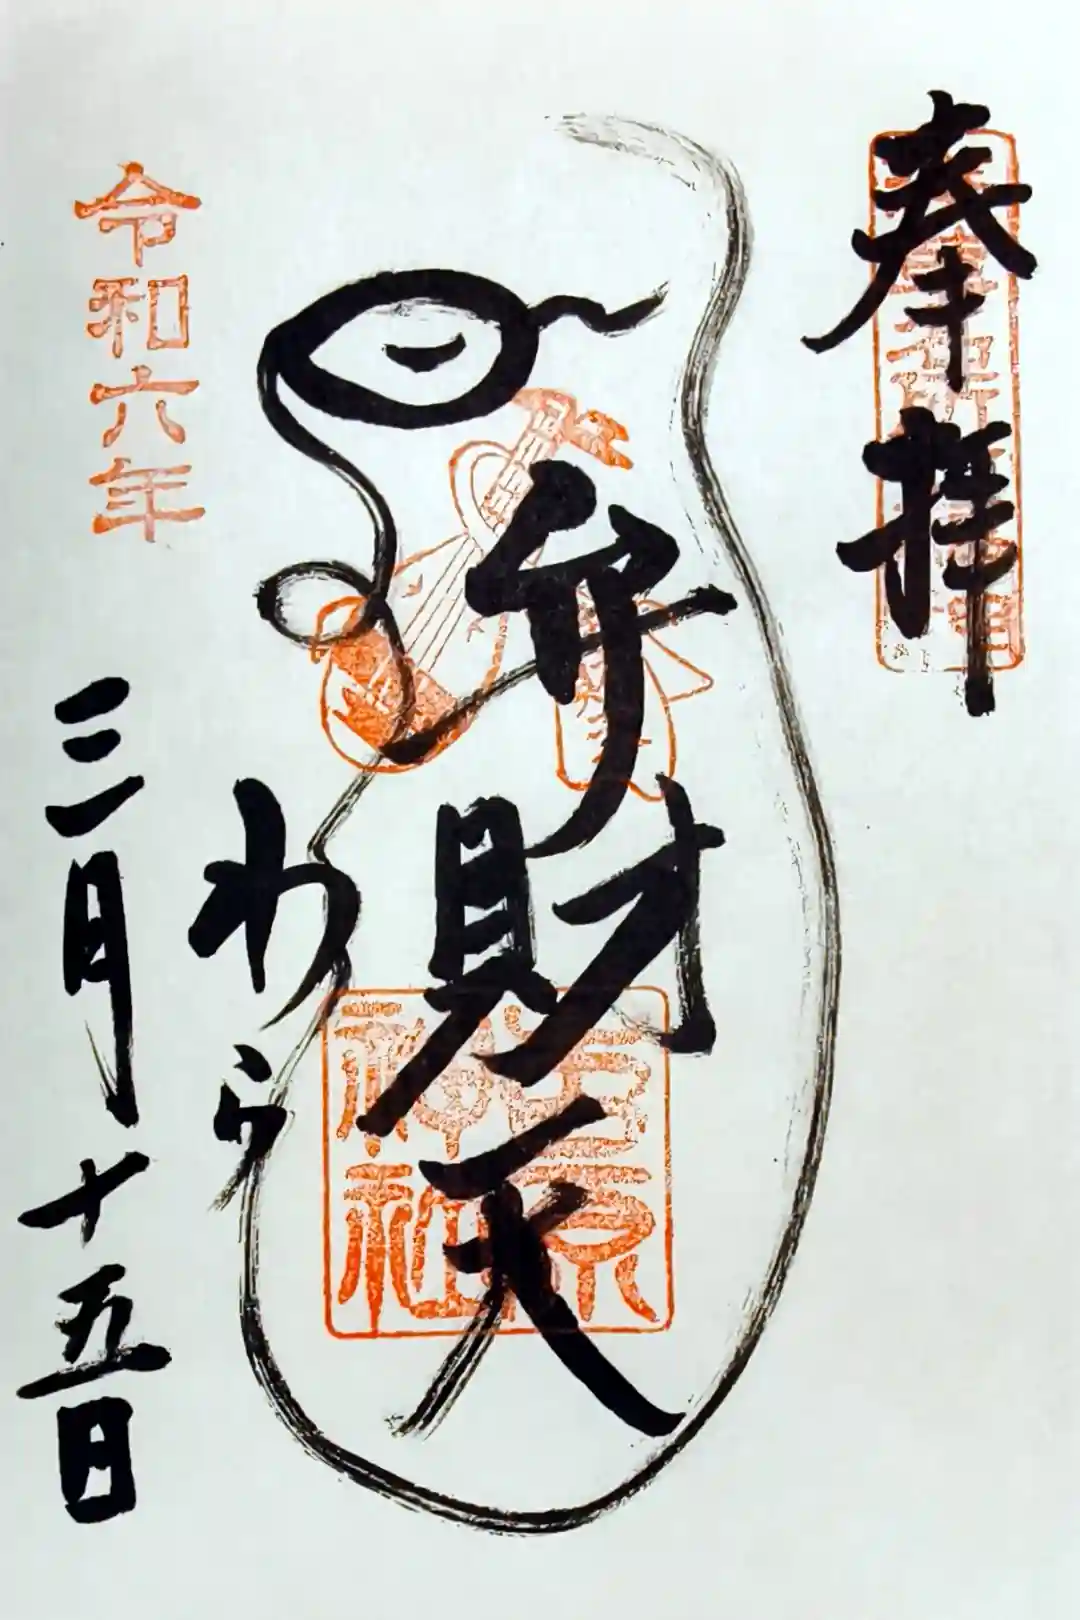 奉拝
弁財天
吉原
神社
わら
令和六年
三月十五日